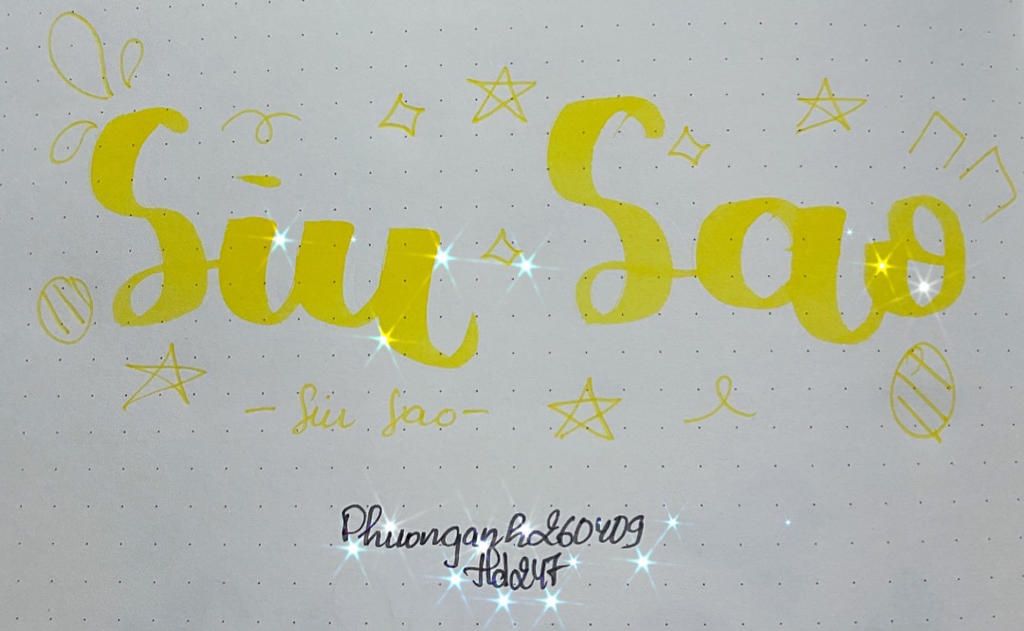 Siu Sao
- Siu Sao -
Phuonganh260409
Hd247